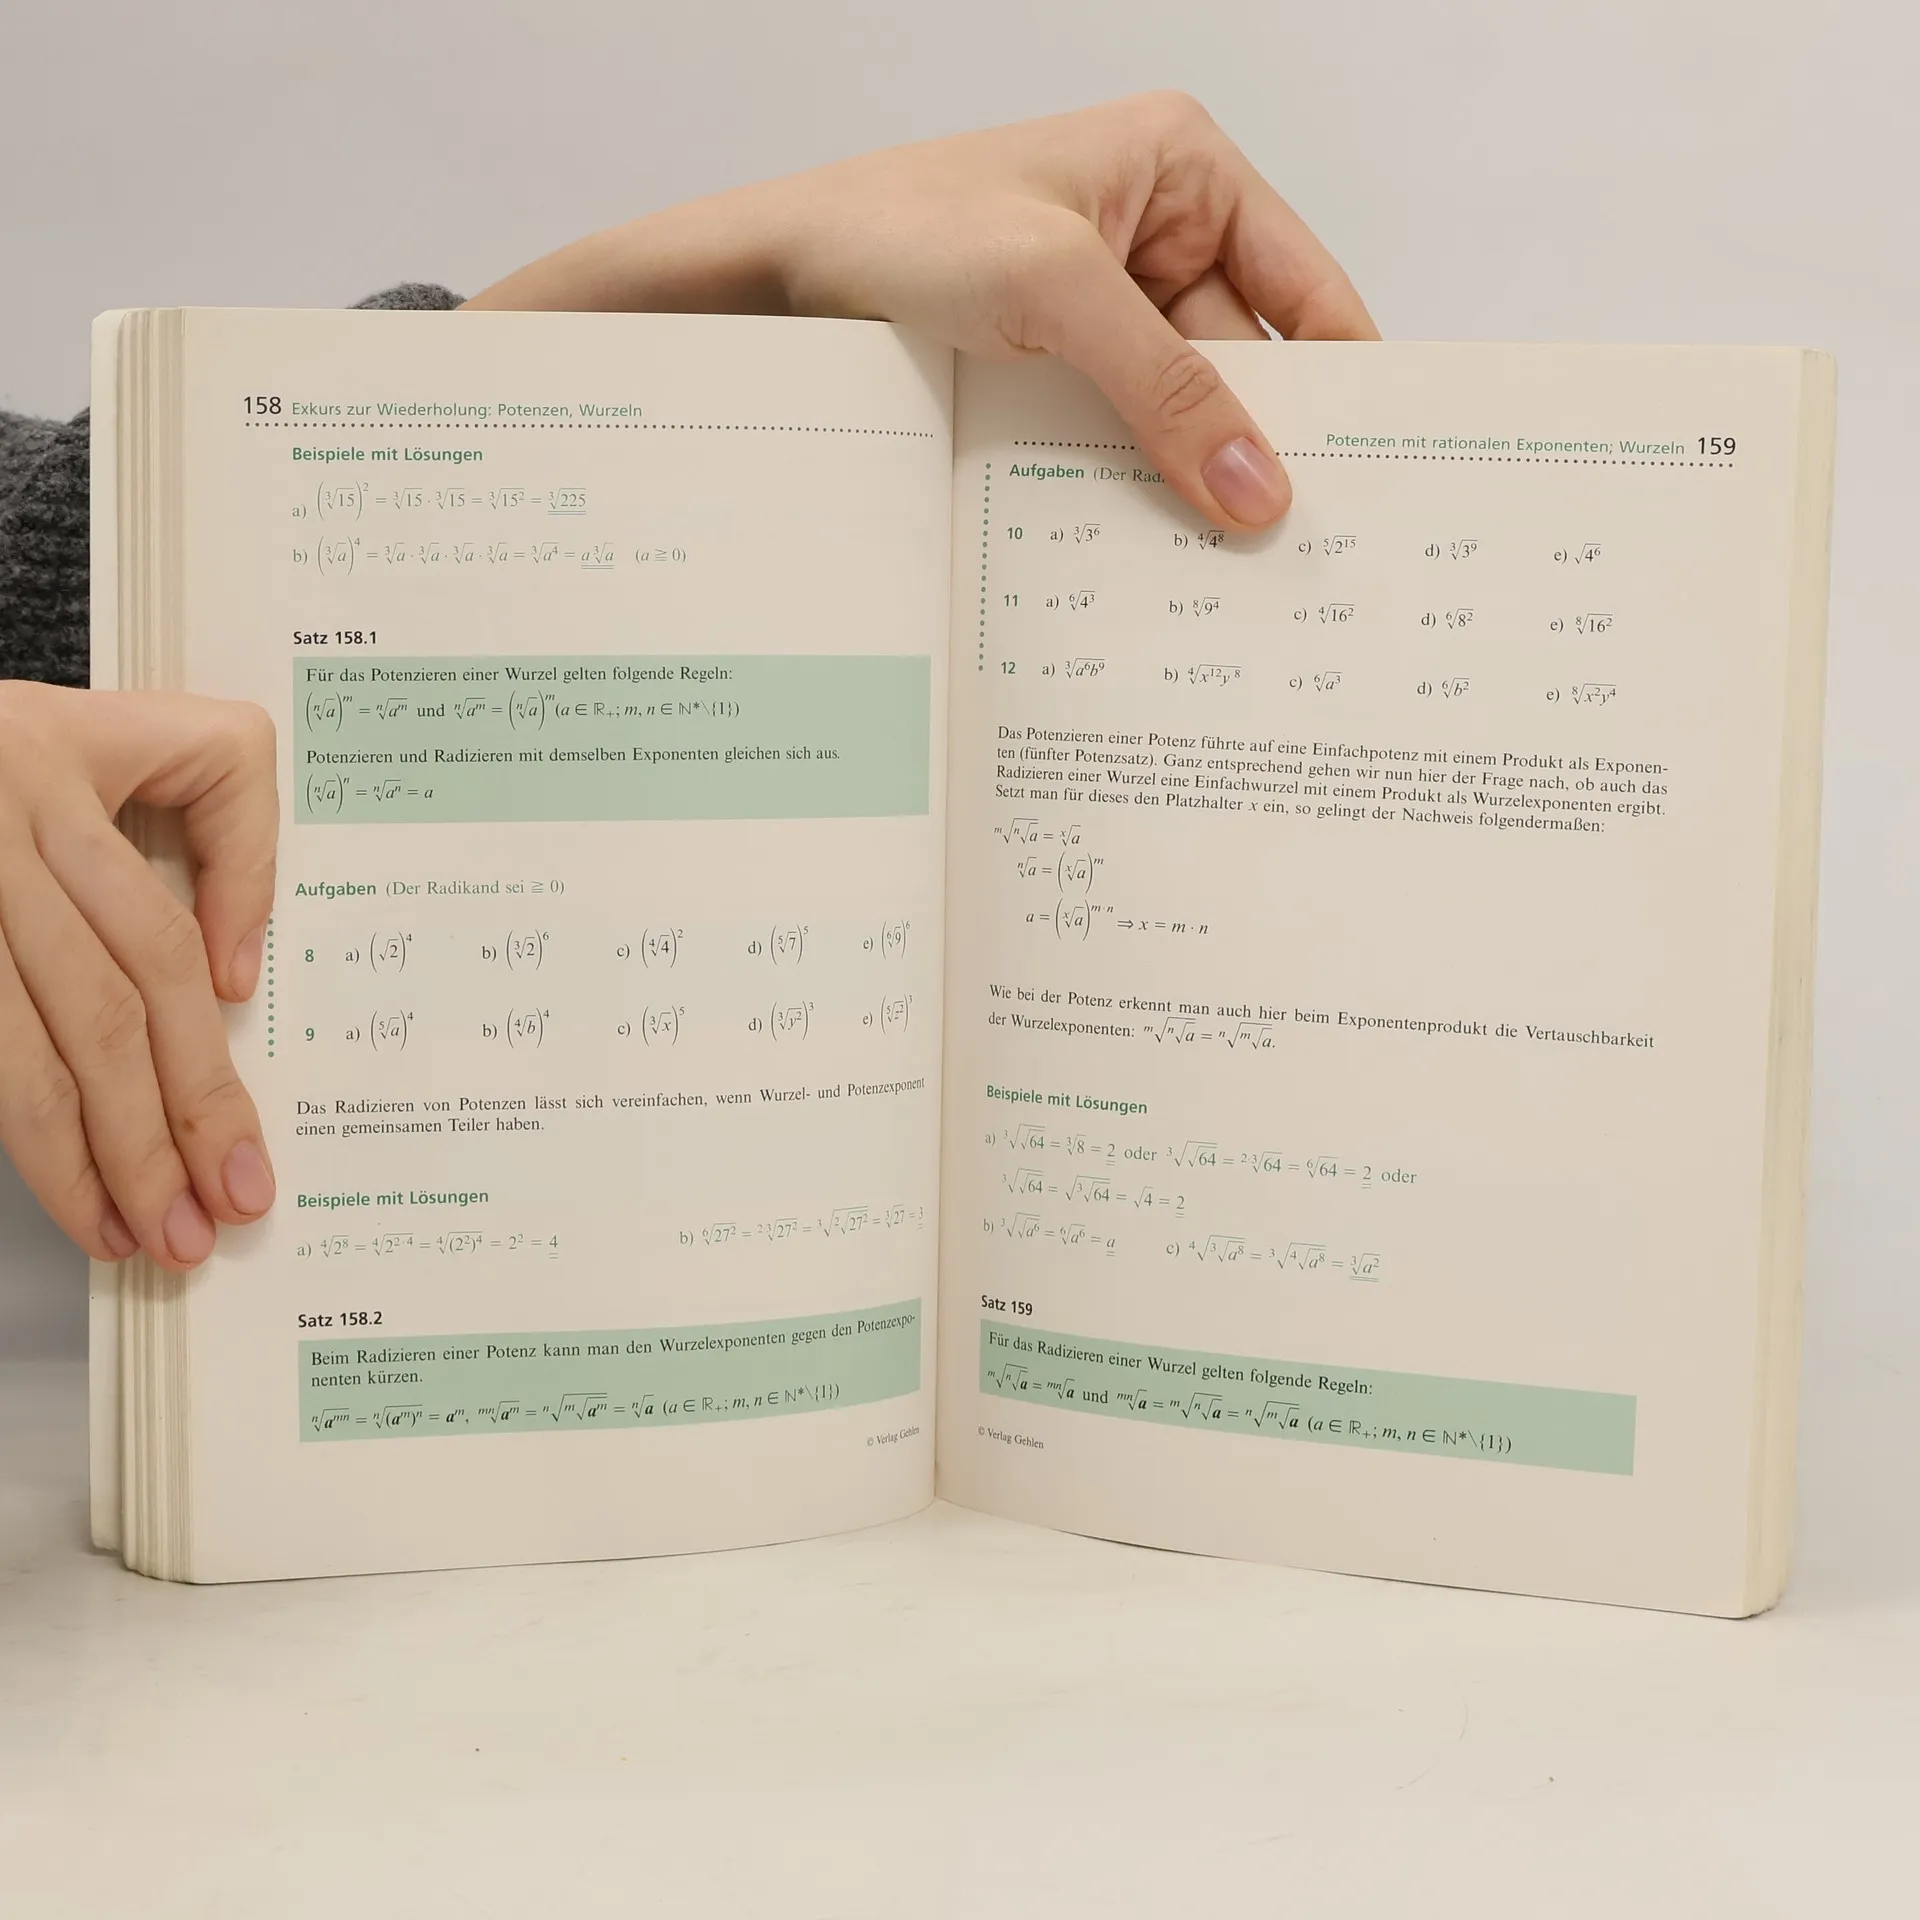 158 Exkurs zur Wiederholung: Potenzen, Wurzeln
Beispiele mit Lösungen
a) (∛15)² = ∛15 · ∛15 = ∛15² = ∛225
b) (∛a)⁴ = ∛a · ∛a · ∛a · ∛a = ∛a⁴ = a∛a (a ≧ 0)
Satz 158.1
Für das Potenzieren einer Wurzel gelten folgende Regeln:
(ⁿ√a)ᵐ = ⁿ√aᵐ und ⁿ√aᵐ = (ⁿ√a)ᵐ (a ∈ ℝ₊; m, n ∈ ℕ*\{1})
Potenzieren und Radizieren mit demselben Exponenten gleichen sich aus.
(ⁿ√a)ⁿ = ⁿ√aⁿ = a
Aufgaben (Der Radikand sei ≧ 0)
8 a) (√2)⁴ b) (∛2)⁶ c) (∜4)² d) (⁵√7)⁵ e) (⁶√9)⁶
9 a) (⁵√a)⁴ b) (∜b)⁴ c) (∛x)⁵ d) (∛y²)³ e) (⁵√z²)³
Das Radizieren von Potenzen lässt sich vereinfachen, wenn Wurzel- und Potenzexponent
einen gemeinsamen Teiler haben.
Beispiele mit Lösungen
a) ∜2⁸ = ∜2²·⁴ = ∜(2²)⁴ = 2² = 4 b) ⁶√27² = ²·³√27² = ³√²√27² = ∛27 = 3
Satz 158.2
Beim Radizieren einer Potenz kann man den Wurzelexponenten gegen den Potenzexpo-
nenten kürzen.
ⁿ√aᵐⁿ = ⁿ√(aᵐ)ⁿ = aᵐ, ᵐⁿ√aᵐ = ⁿ√ᵐ√aᵐ = ⁿ√a (a ∈ ℝ₊; m, n ∈ ℕ*\{1})
© Verlag Gehlen
Potenzen mit rationalen Exponenten; Wurzeln 159
Aufgaben (Der
10 a) ∛3⁶ b) ∜4⁸ c) ⁵√2¹⁵ d) ∛3⁹ e) √4⁶
11 a) ⁶√4³ b) ⁸√9⁴ c) ∜16² d) ⁶√8² e) ⁸√16²
12 a) ∛a⁶b⁹ b) ∜x¹²y⁸ c) ⁶√a³ d) ⁶√b² e) ⁸√x²y⁴
Das Potenzieren einer Potenz führte auf eine Einfachpotenz mit einem Produkt als Exponen-
ten (fünfter Potenzsatz). Ganz entsprechend gehen wir nun hier der Frage nach, ob auch das
Radizieren einer Wurzel eine Einfachwurzel mit einem Produkt als Wurzelexponenten ergibt.
Setzt man für dieses den Platzhalter x ein, so gelingt der Nachweis folgendermaßen:
ᵐ√ⁿ√a = ˣ√a
ⁿ√a = (ˣ√a)ᵐ
a = (ˣ√a)ᵐ·ⁿ ⇒ x = m · n
Wie bei der Potenz erkennt man auch hier beim Exponentenprodukt die Vertauschbarkeit
der Wurzelexponenten: ᵐ√ⁿ√a = ⁿ√ᵐ√a.
Beispiele mit Lösungen
a) ³√√64 = ∛8 = 2 oder ³√√64 = ²·³√64 = ⁶√64 = 2 oder
³√√64 = √³√64 = √4 = 2
b) ³√√a⁶ = ⁶√a⁶ = a c) ⁴√³√a⁸ = ³√⁴√a⁸ = ∛a²
Satz 159
Für das Radizieren einer Wurzel gelten folgende Regeln:
ᵐ√ⁿ√a = ᵐⁿ√a und ᵐⁿ√a = ᵐ√ⁿ√a = ⁿ√ᵐ√a (a ∈ ℝ₊; m, n ∈ ℕ*\{1})
© Verlag Gehlen